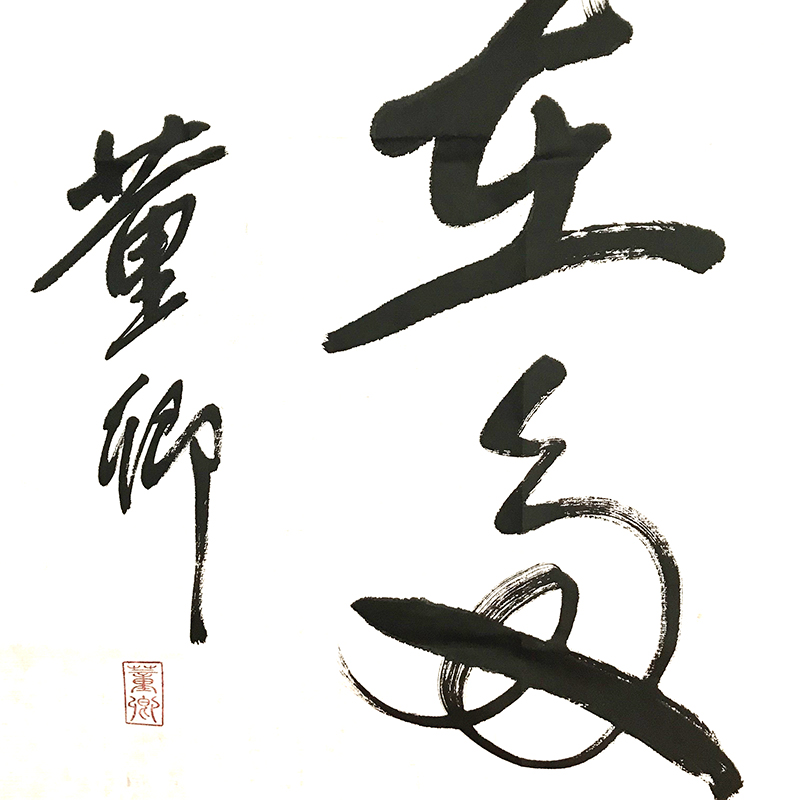 在
董卿
董卿